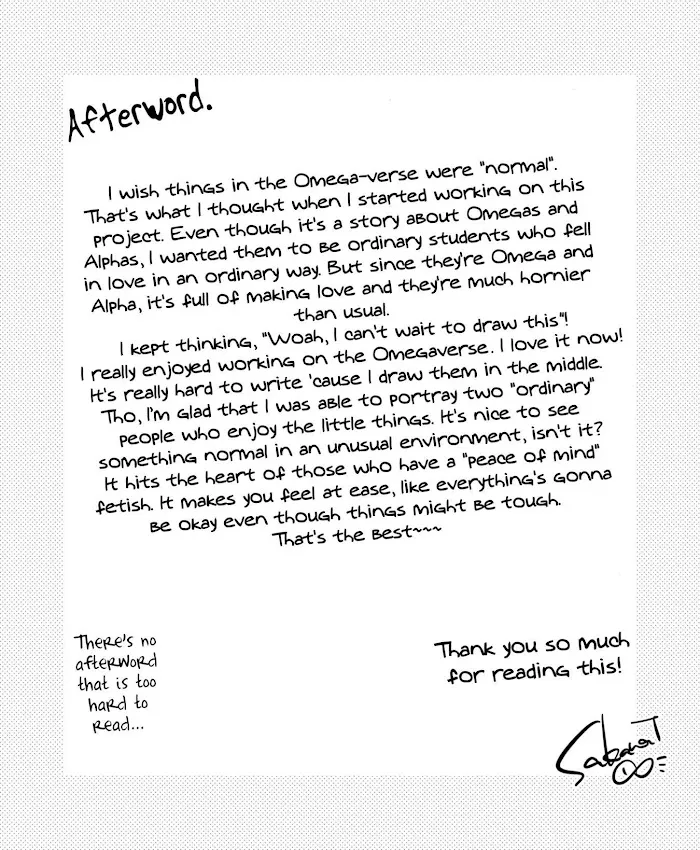 Afterword.
I wish things in the Omega-verse were "normal".
That's what I thought when I started working on this
project. Even though it's a story about Omegas and
Alphas, I wanted them to be ordinary students who fell
in love in an ordinary way. But since they're Omega and
Alpha, it's full of making love and they're much hornier
than usual.
I kept thinking, "Woah, I can't wait to draw this"!
I really enjoyed working on the Omegaverse. I love it now!
It's really hard to write 'cause I draw them in the middle.
Tho, I'm glad that I was able to portray two "ordinary"
people who enjoy the little things. It's nice to see
something normal in an unusual environment, isn't it?
It hits the heart of those who have a "peace of mind"
fetish. It makes you feel at ease, like everything's gonna
be okay even though things might be tough.
That's the best~~~
There's no
afterword
that is too
hard to
read...
Thank you so much
for reading this!